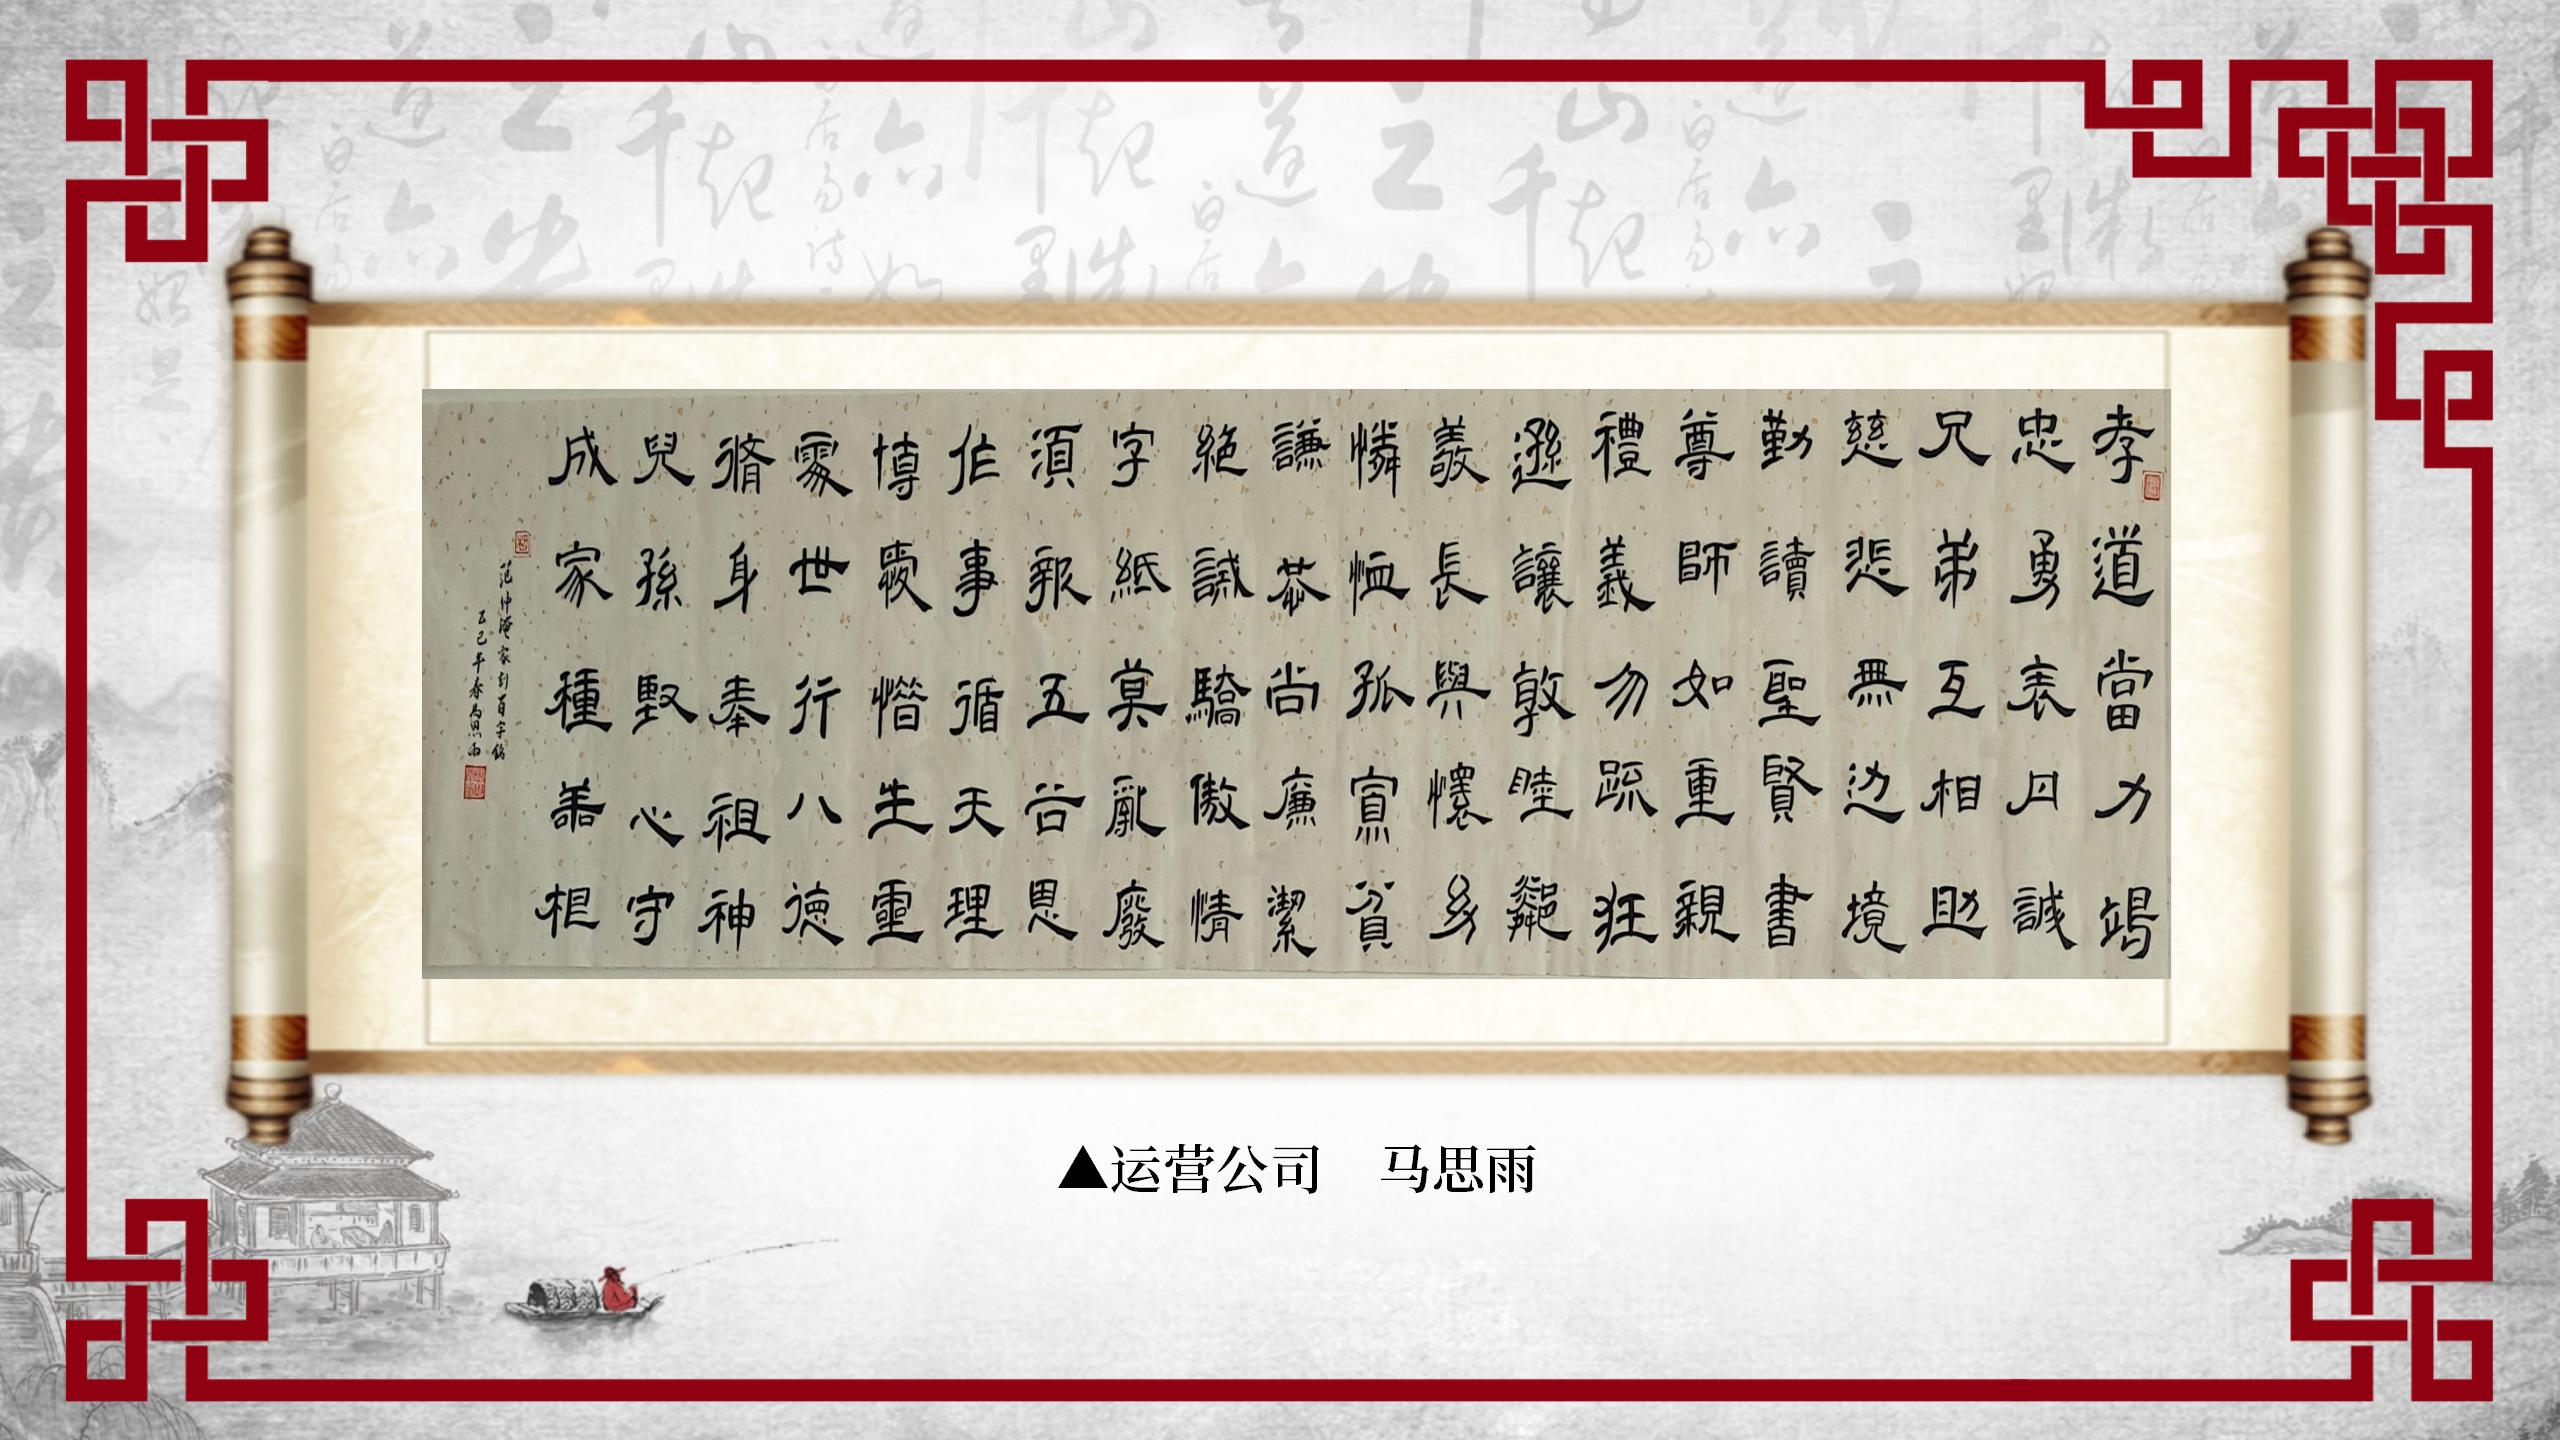 孝道當力竭
忠勇表丹誠
兄弟互相助
慈悲無边境
勤讀聖賢書
尊師如重親
禮義勿疏狂
遜讓敦睦鄰
敬長與懷幼
憐恤孤寡貧
謙恭尚廉潔
絕誡驕傲情
字紙莫亂廢
須報五谷恩
作事循天理
博愛惜生靈
處世行八德
脩身奉祖神
兒孫堅心守
成家種善根
范仲淹家訓百字銘
乙巳年春馬思雨
▲运营公司 马思雨